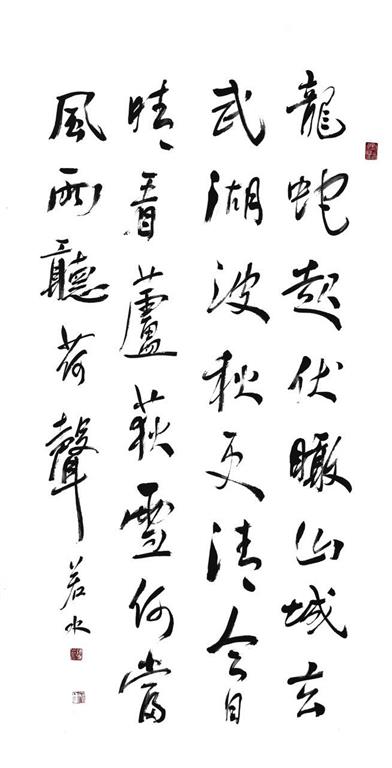 龍蛇起伏瞰山城玄
武湖波秋更清今日
晴看蘆荻雪何當
風雨聽荷聲
若水